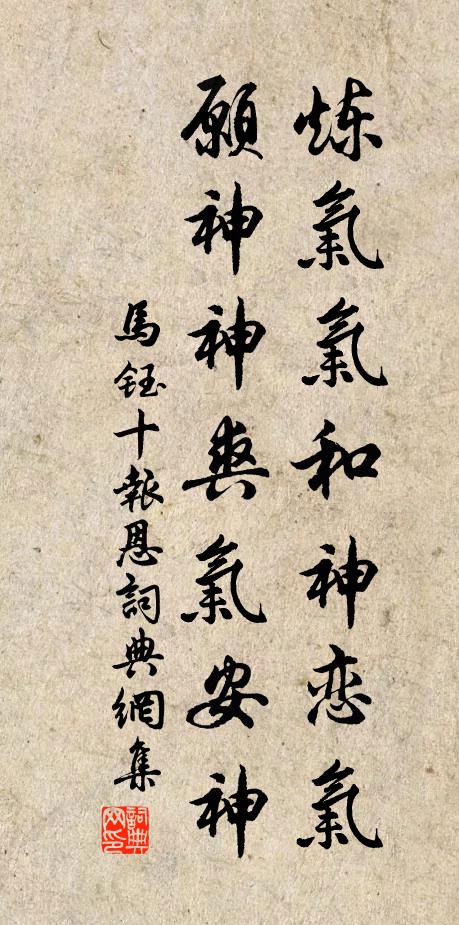 炼氣氣和神恋氣
願神神爽氣安神
馬鈺十報恩詞典網集
詞典网印